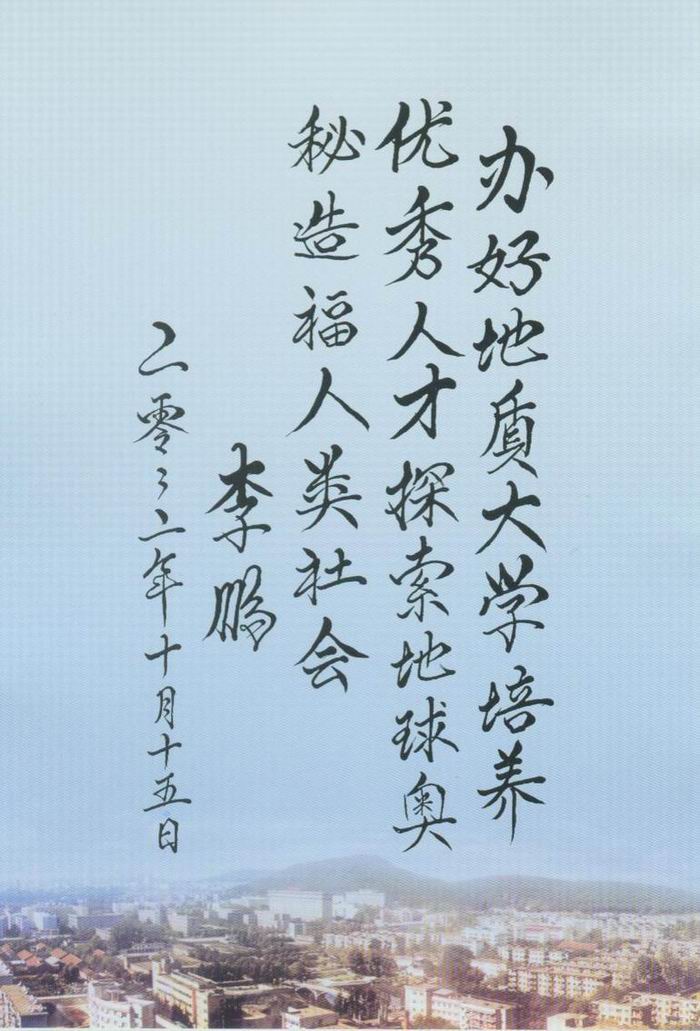 办好地质大学培养
优秀人才探索地球奥
秘造福人类社会
李鹏
二零零二年十月十五日